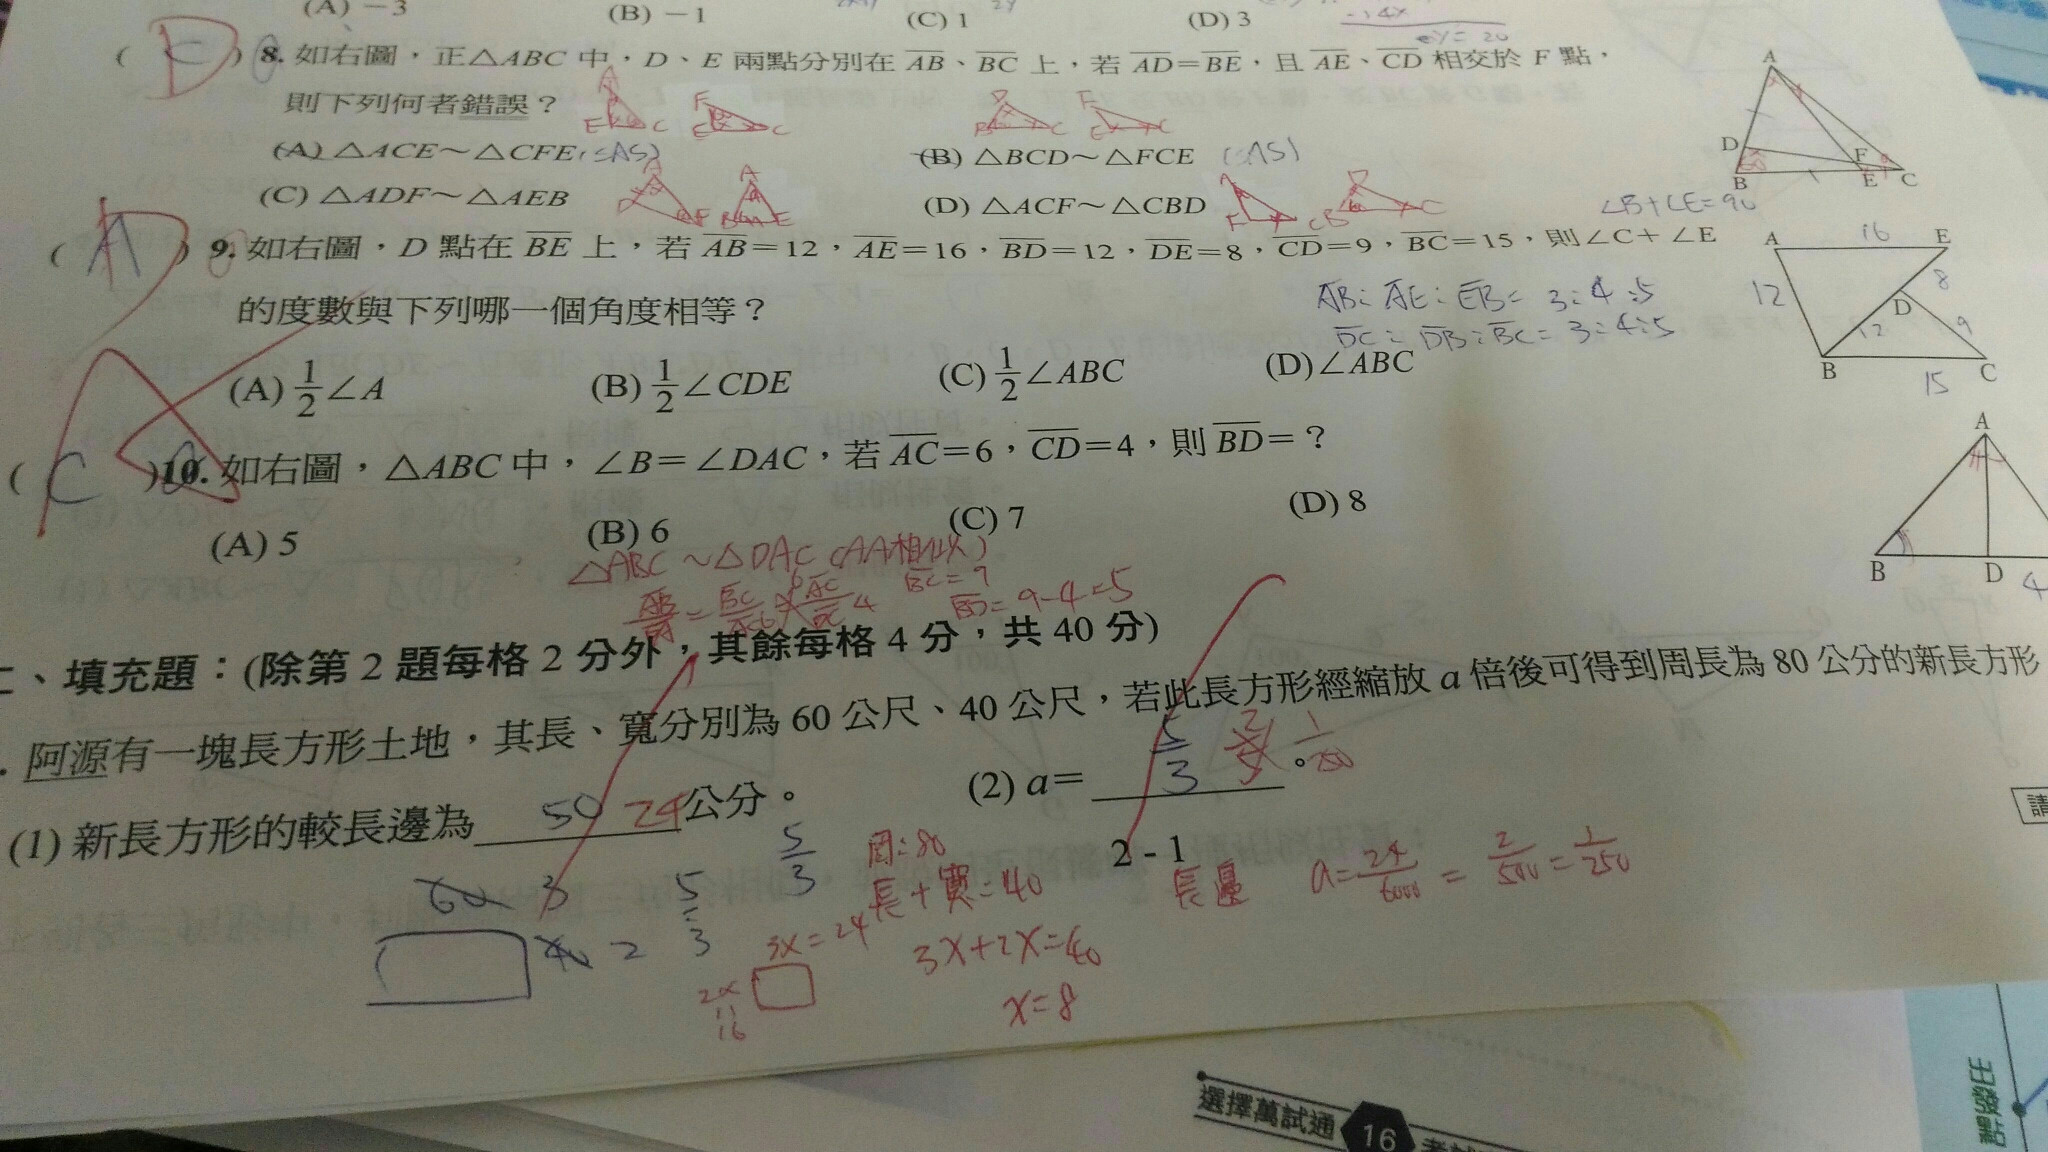 (A) －3 (B) －1 (C) 1 (D) 3
( D ) 8. 如右圖，正△ABC 中，D、E 兩點分別在 AB、BC 上，若 AD＝BE，且 AE、CD 相交於 F 點，
則下列何者錯誤？
(A) △ACE～△CFE (B) △BCD～△FCE
(C) △ADF～△AEB (D) △ACF～△CBD
A
D
F
B
E
C
∠B+∠E=90
( A ) 9. 如右圖，D 點在 BE 上，若 AB＝12，AE＝16，BD＝12，DE＝8，CD＝9，BC＝15，則∠C＋∠E
的度數與下列哪一個角度相等？
AB : AE : EB = 3:4:5
DC : DB : BC = 3:4:5
(A) 1/2 ∠A (B) 1/2 ∠CDE (C) 1/2 ∠ABC (D) ∠ABC
A 16 E
12 8
D
12 9
B 15 C
( C ) 10. 如右圖，△ABC 中，∠B＝∠DAC，若 AC＝6，CD＝4，則 BD＝？
(A) 5 (B) 6 (C) 7 (D) 8
A
B D 4
△ABC ~ △DAC (AA相似)
BC = 9
BD = 9-4=5
、填充題：(除第 2 題每格 2 分外，其餘每格 4 分，共 40 分)
. 阿源有一塊長方形土地，其長、寬分別為 60 公尺、40 公尺，若此長方形經縮放 a 倍後可得到周長為 80 公分的新長方形
(1) 新長方形的較長邊為 50 24 公分。 (2) a＝ 5/3 。
2 - 1
請
60 3
40 2
5:3
5/3
周:80
長+寬=40
3x+2x=40
x=8
3x=24
2x
16
長邊 a= 24/6000 = 2/500 = 1/250
選擇萬試通 16